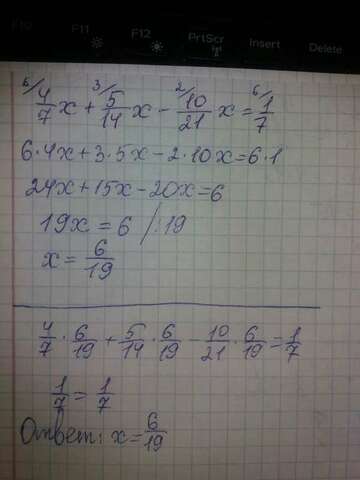 F10 F11 F12 PrtScr Insert Delete
6/ 4/7 x + 3/ 5/14 x - 2/ 10/21 x = 6/ 1/7
6·4x+3·5x-2·10x=6·1
24x+15x-20x=6
19x=6 /:19
x=6/19
4/7 · 6/19 + 5/14 · 6/19 - 10/21 · 6/19 = 1/7
1/7 = 1/7
Ответ: x=6/19